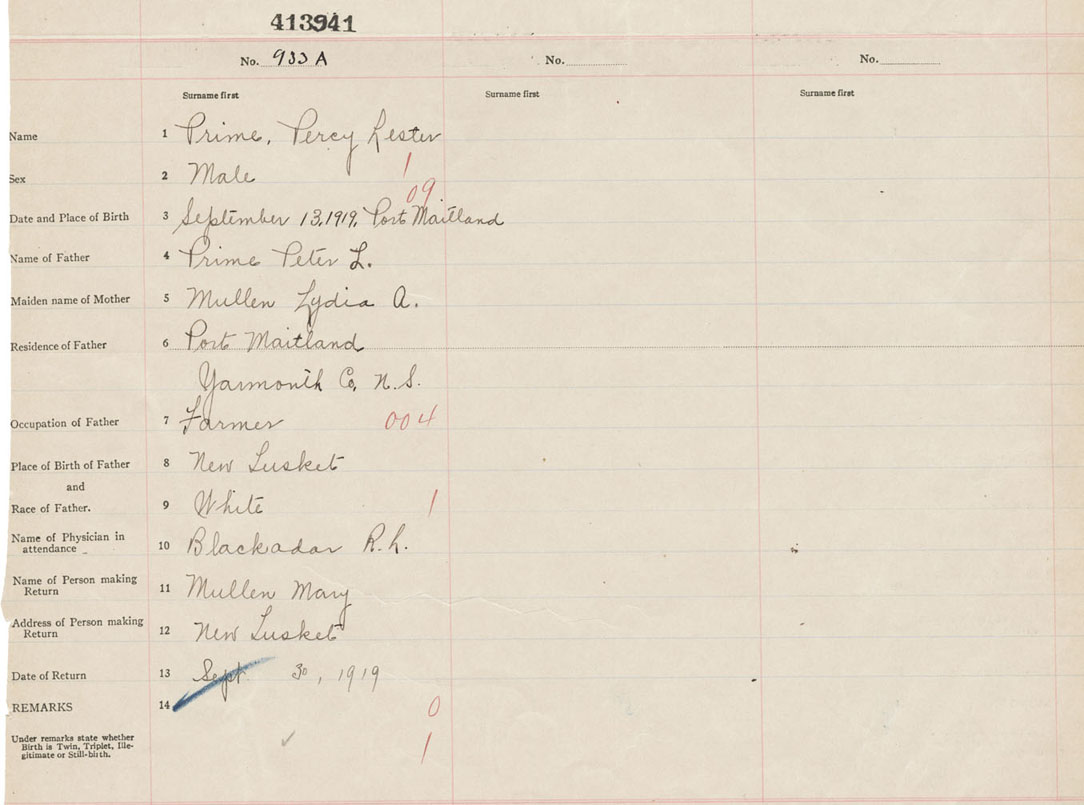 413941
No. 933 A No. No.
Surname first Surname first Surname first
Name 1 Prime, Percy Lester
1
Sex 2 Male
09
Date and Place of Birth 3 September 13, 1919, Port Maitland
Name of Father 4 Prime Peter L.
Maiden name of Mother 5 Mullen Lydia A.
Residence of Father 6 Port Maitland
Yarmouth Co, N.S.
Occupation of Father 7 Farmer 004
Place of Birth of Father 8 New Tusket
and
Race of Father. 9 White 1
Name of Physician in
attendance 10 Blackadar R.L.
Name of Person making
Return 11 Mullen Mary
Address of Person making
Return 12 New Tusket
Date of Return 13 Sept. 30, 1919
REMARKS 14 0
Under remarks state whether
Birth is Twin, Triplet, Ille-
gitimate or Still-birth. 1